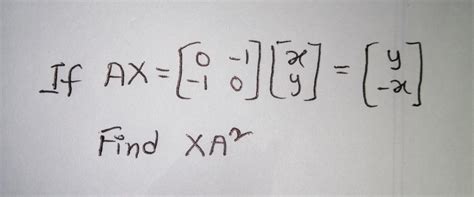 If AX = [0 -1 -1 0] [x y] = [y -x]
Find XA²